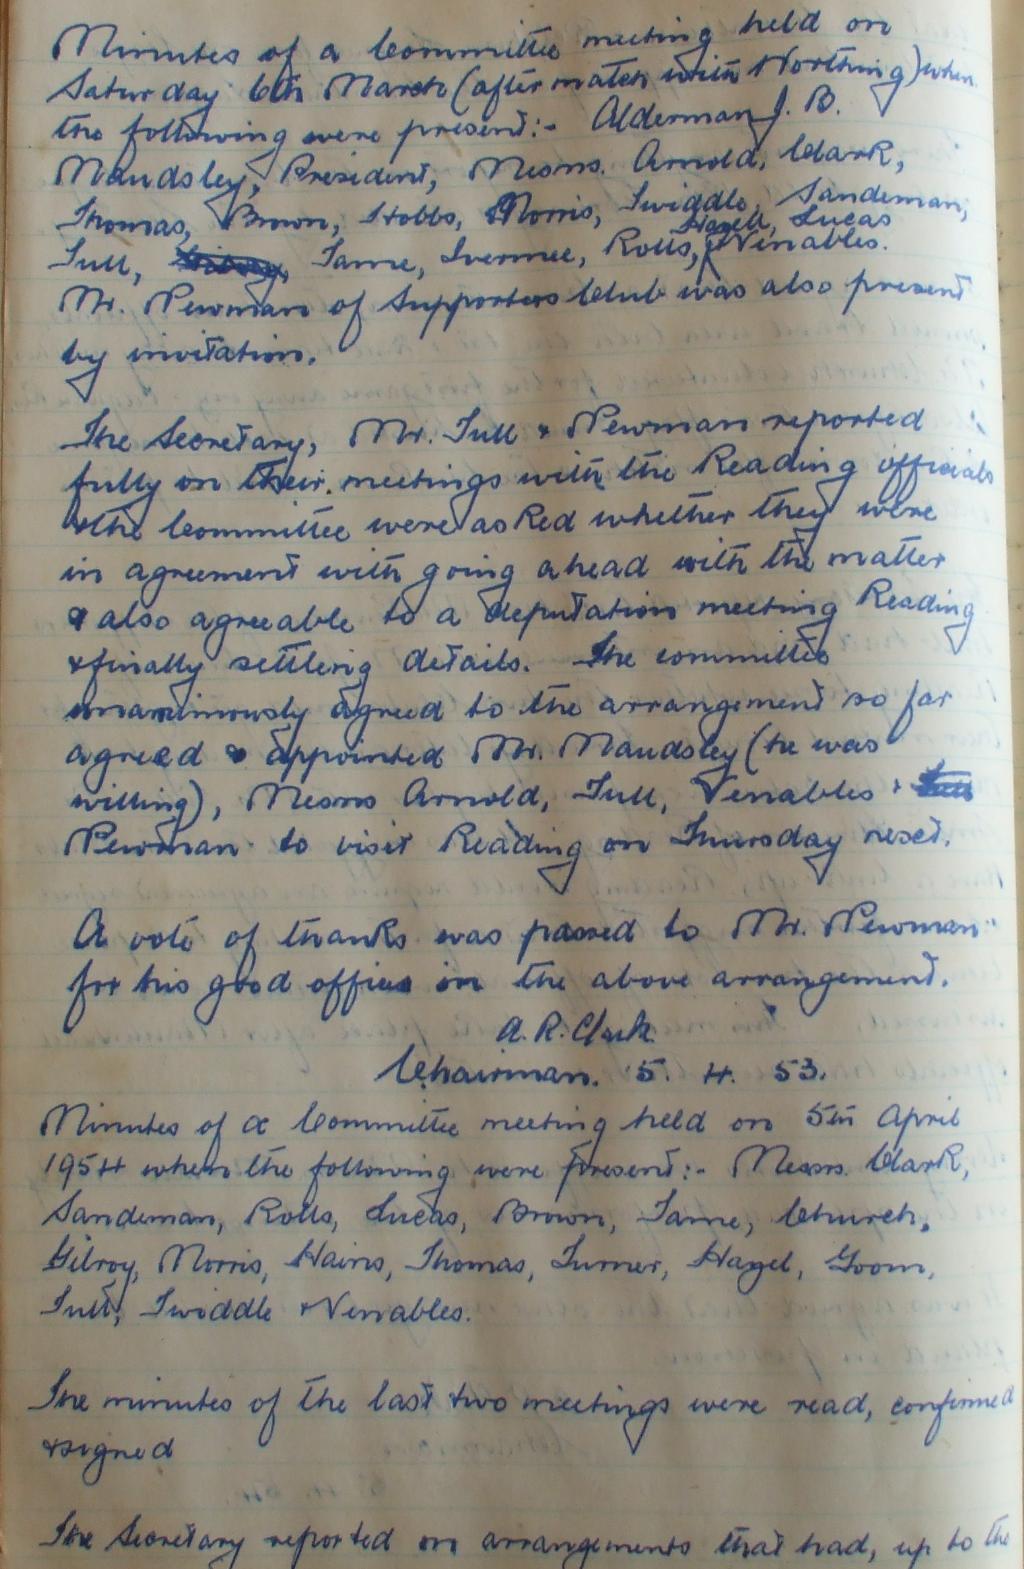 Minutes of a Committee meeting held on
Saturday 6th March (after match with Worthing) when
the following were present:- Alderman J. B.
Maudsley, President, Messrs. Arnold, Clark,
Thomas, Brown, Hobbs, Morris, Twiddle, Sandeman,
Hazell, Lucas
Tull, Tame, Ivermee, Rolls, Venables.
Mr. Pewman of Supporters Club was also present
by invitation.
The Secretary, Mr. Tull & Pewman reported
fully on their meetings with the Reading officials
& the Committee were asked whether they were
in agreement with going ahead with the matter
& also agreeable to a deputation meeting Reading
& finally settling details. The committee
unanimously agreed to the arrangement so far
agreed & appointed Mr. Maudsley (he was
willing), Messrs Arnold, Tull, Venables &
Pewman to visit Reading on Thursday next.
A vote of thanks was passed to Mr. Pewman
for his good offices in the above arrangement.
A. R. Clark.
Chairman. 5. 4. 53.
Minutes of a Committee meeting held on 5th April
1954 when the following were present:- Messrs. Clark,
Sandeman, Rolls, Lucas, Brown, Tame, Church,
Gilroy, Morris, Hains, Thomas, Turner, Hazel, Goom,
Tull, Twiddle & Venables.
The minutes of the last two meetings were read, confirmed
& signed
The Secretary reported on arrangements that had, up to the